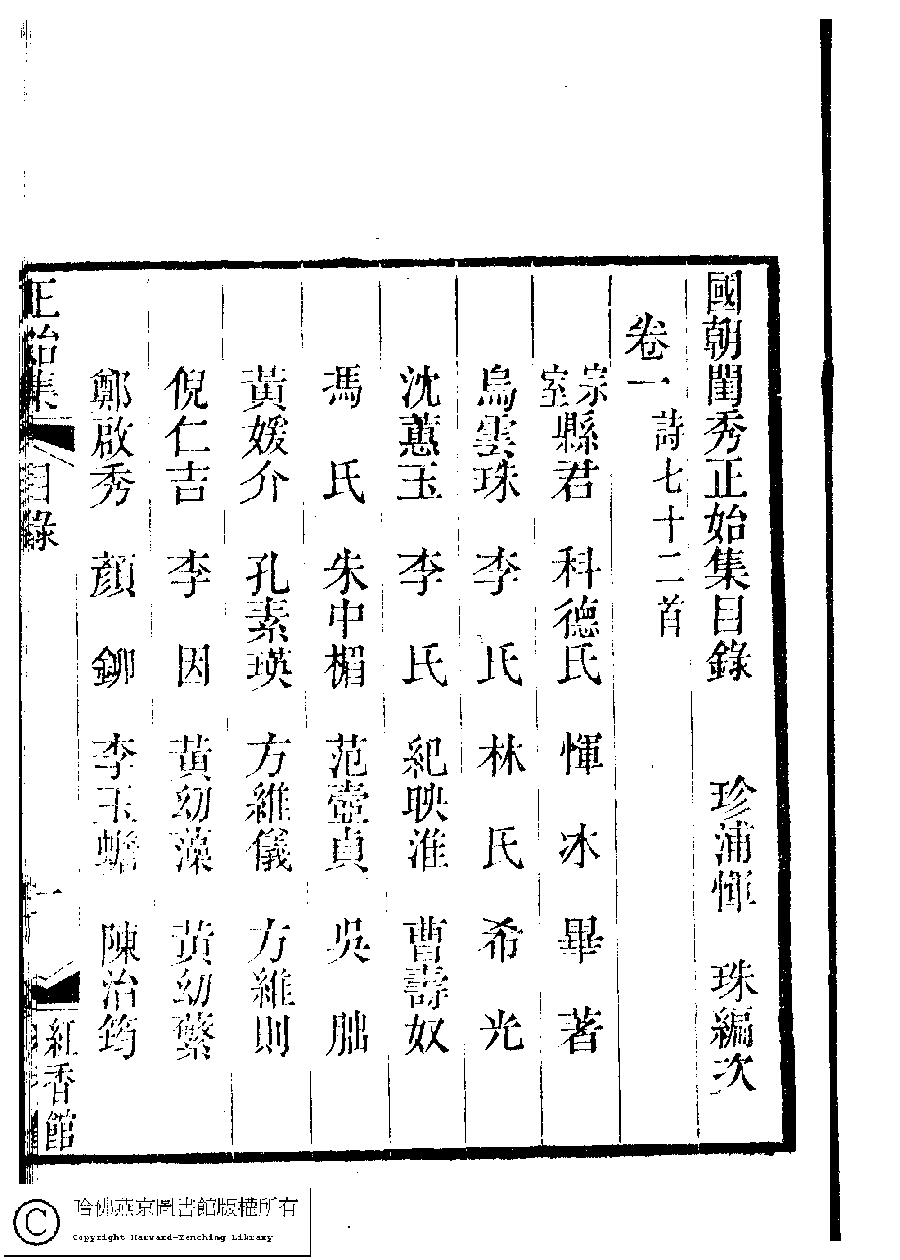 國朝閨秀正始集目錄 珍浦惲 珠編次
卷一 詩七十二首
宗室縣君 科德氏 惲 冰 畢 著
烏雲珠 李 氏 林 氏 希 光
沈蕙玉 李 氏 紀映淮 曹壽奴
馮 氏 朱中楣 范壼貞 吳 朏
黃媛介 孔素瑛 方維儀 方維則
倪仁吉 李 因 黃幼藻 黃幼蘩
鄭啟秀 顏 鉚 李玉蟾 陳治筠
正始集 目錄 一 紅香館
哈佛燕京圖書館版權所有
Copyright Harvard-Yenching Library